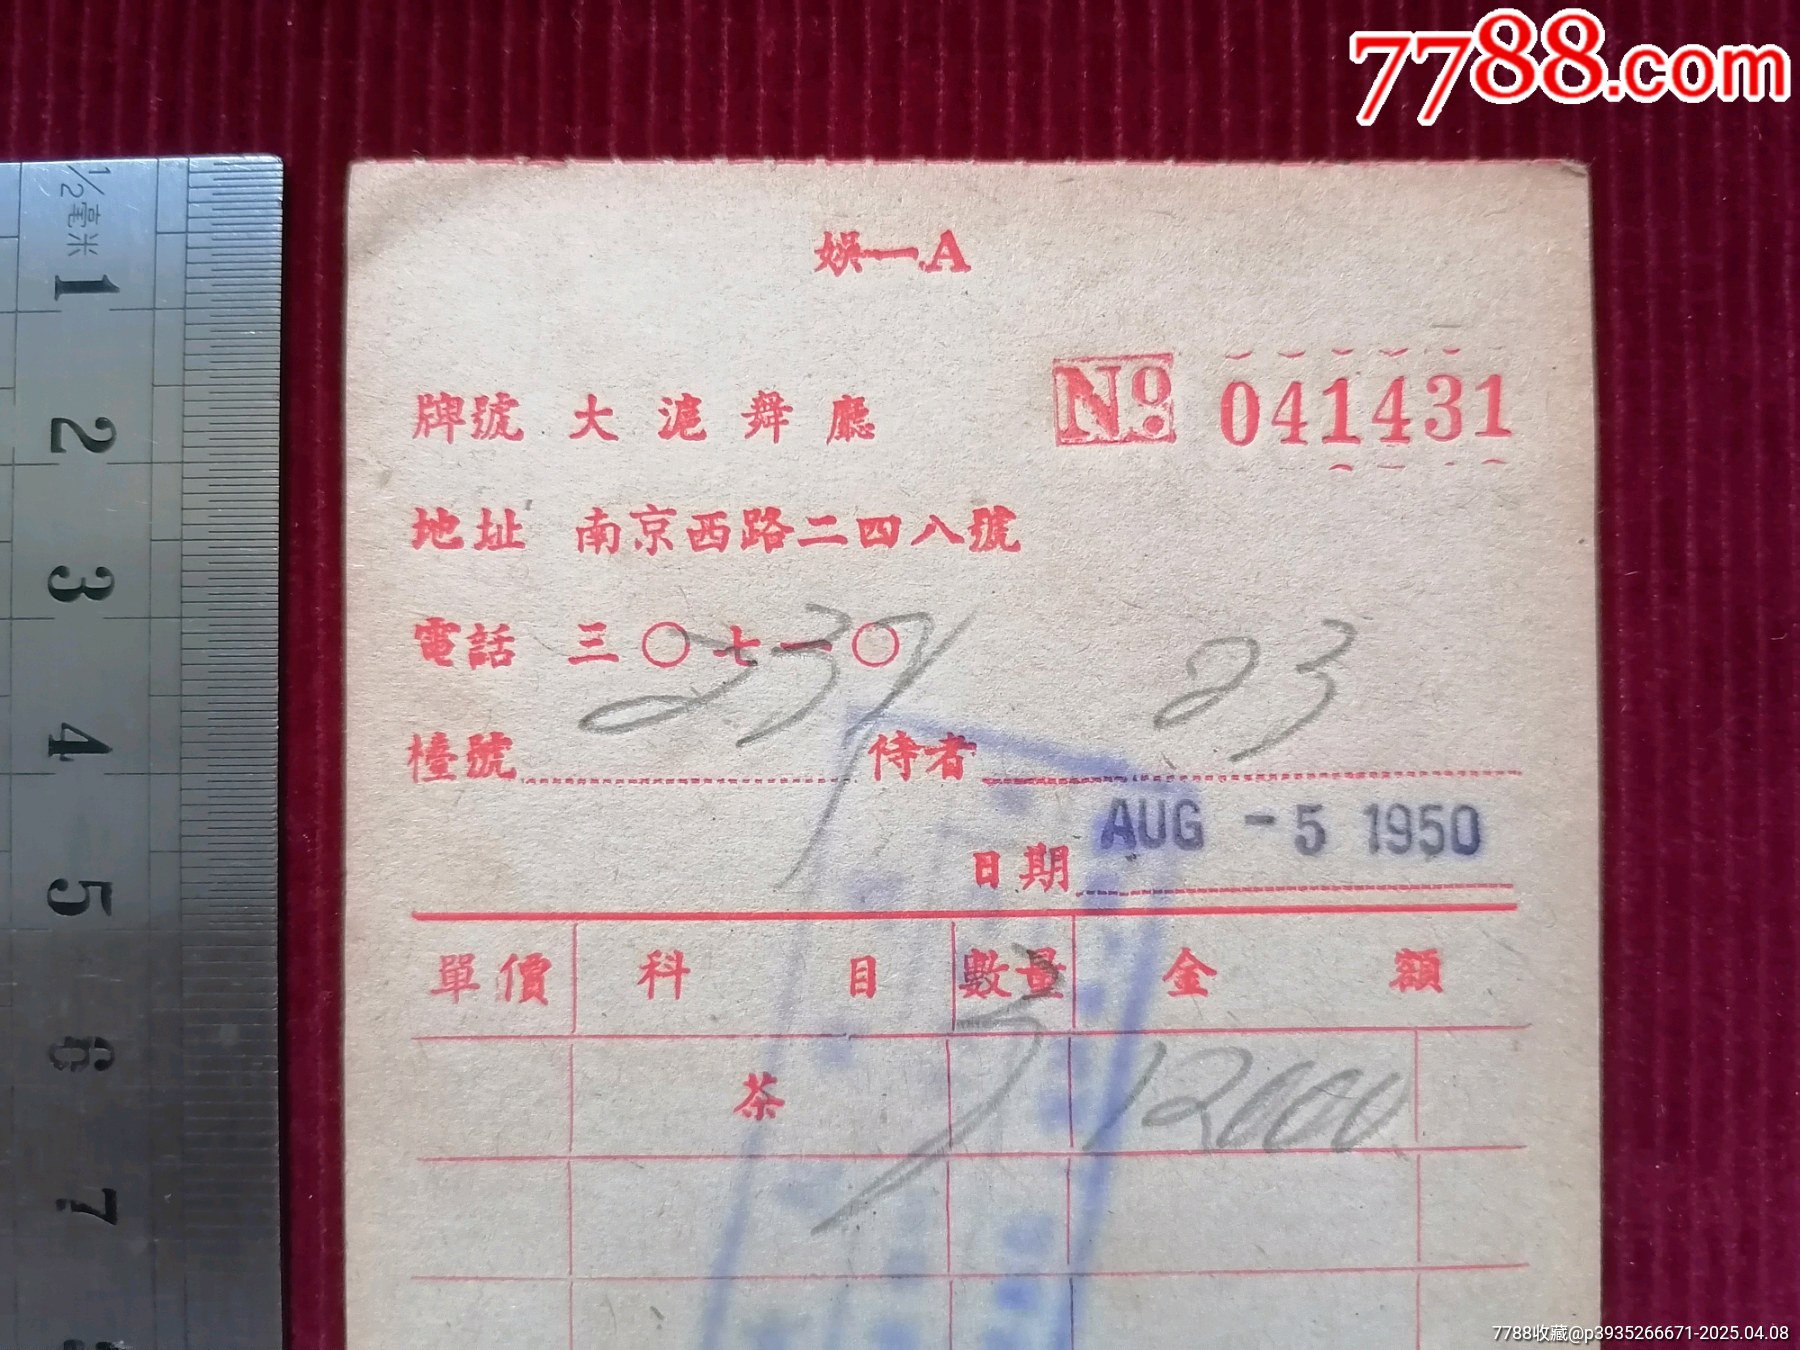 7788.com
1/2毫米
1
2
3
4
5
6
7
娛一.A
No. 041431
牌號 大滬舞廳
地址 南京西路二四八號
電話 三〇七一〇
檯號 侍者 23
日期 AUG -5 1950
單價 科目 數量 金額
茶 12000
7788收藏@p3935266671-2025.04.08